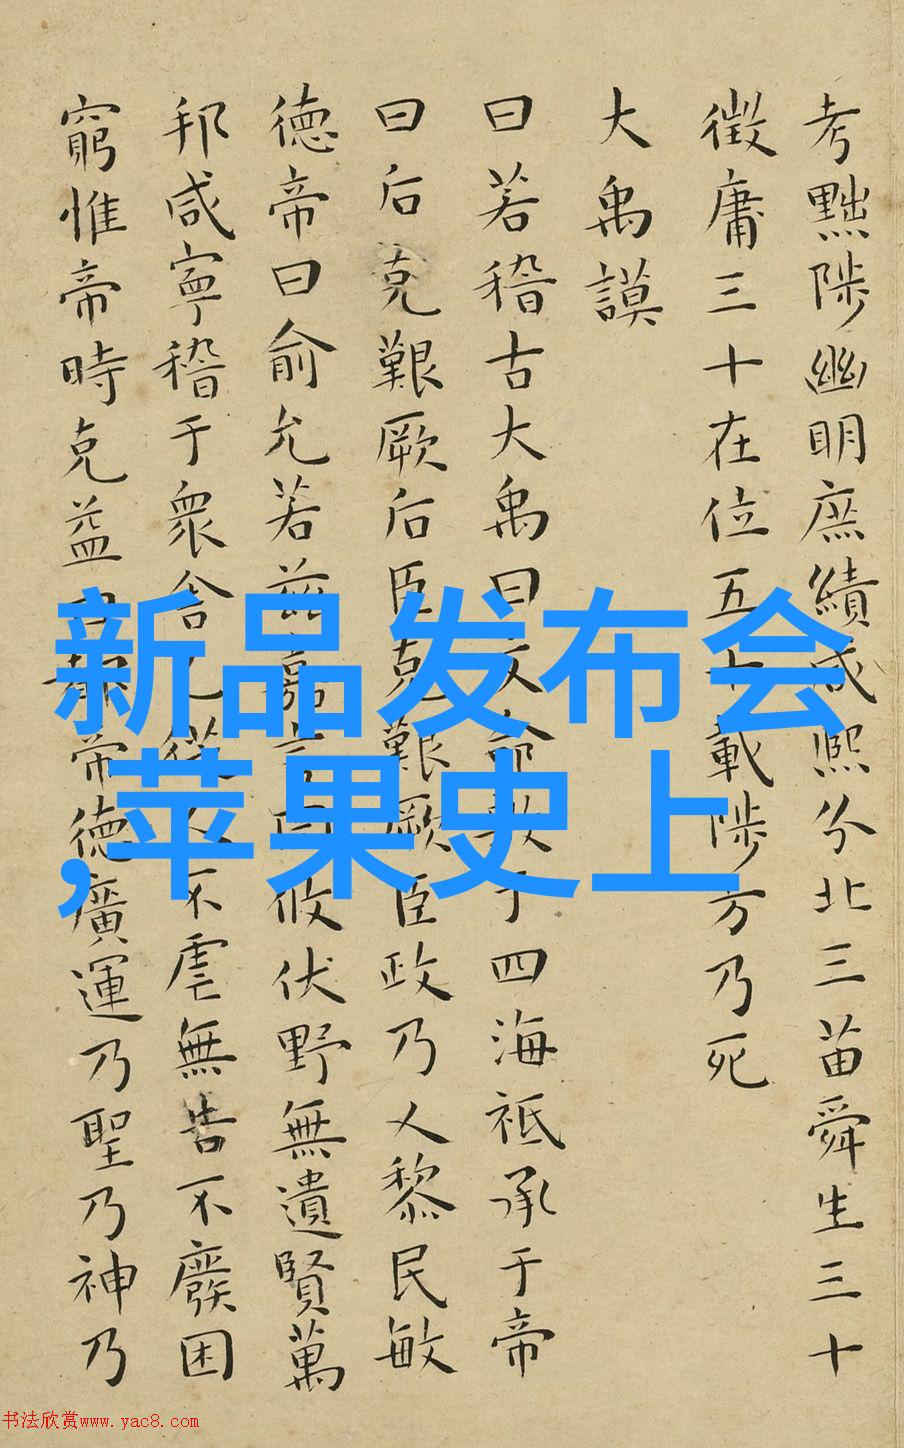 考黜陟幽明庶績咸熙分北三苗舜生三十
徵庸三十在位五十載陟方乃死
大禹謨
曰若稽古大禹曰文命敷于四海祗承于帝
曰后克艱厥后臣克艱厥臣政乃乂黎民敏
德帝曰俞允若茲嘉言罔攸伏野無遺賢萬
邦咸寧稽于衆舍己從人不虐無告不廢困
窮惟帝時克益曰都帝德廣運乃聖乃神乃
新品发布会
,苹果史上
书法欣赏www.yac8.com